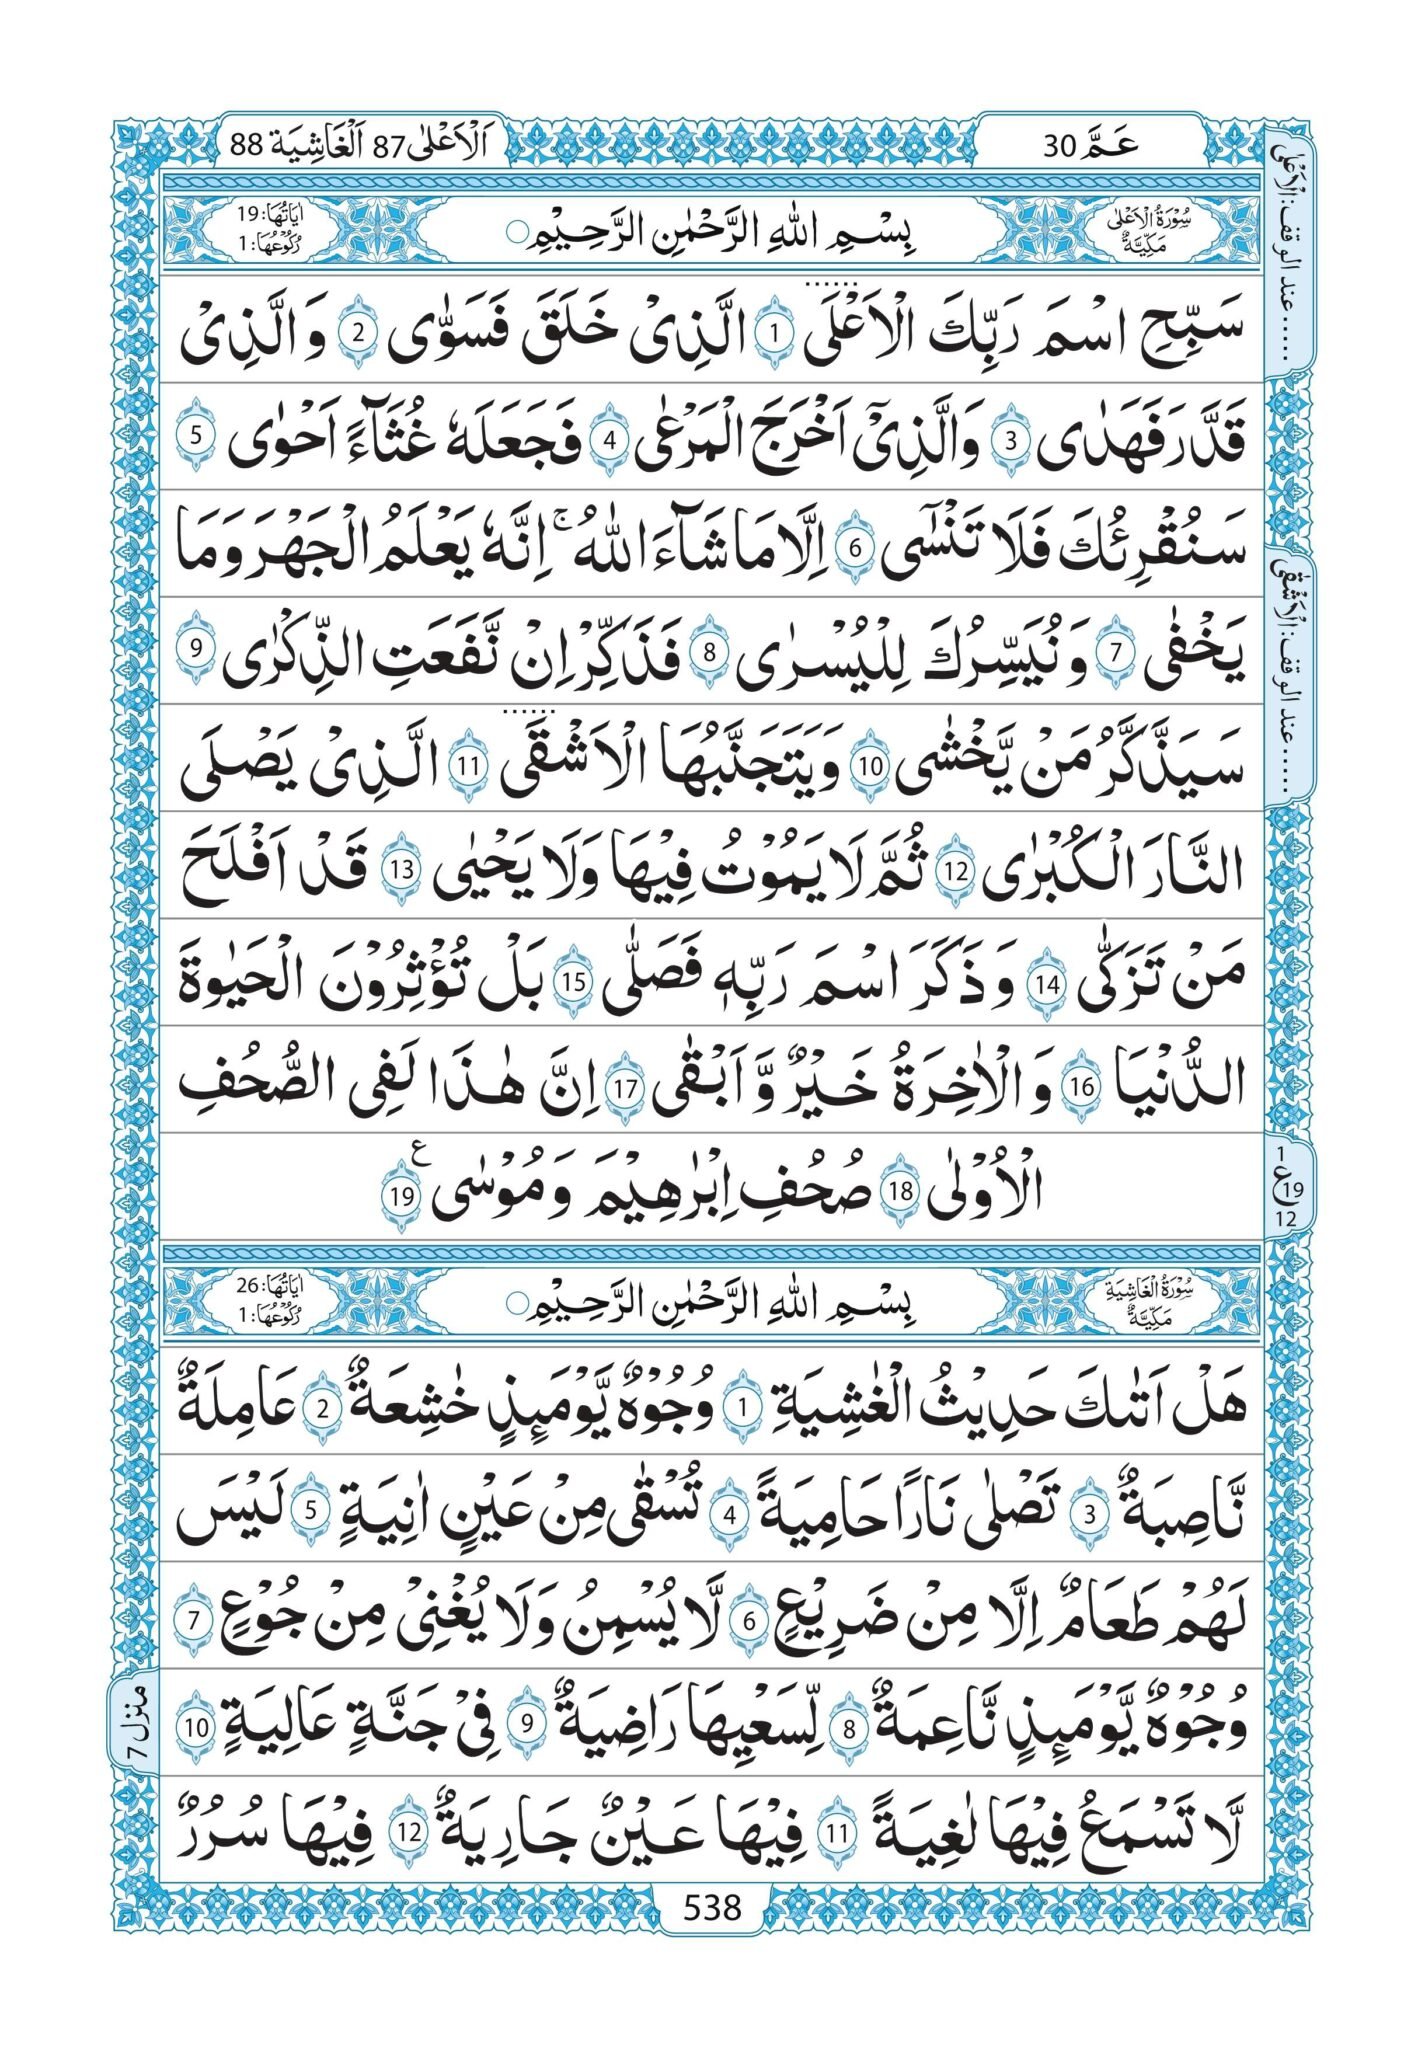 عَمَّ 30
اَلْاَعْلٰى 87 اَلْغَاشِيَة 88
سُوْرَةُ الْاَعْلٰى مَكِّيَّةٌ
بِسْمِ اللّٰهِ الرَّحْمٰنِ الرَّحِيْمِ
اٰيَاتُهَا: 19
رُكُوْعُهَا: 1
سَبِّحِ اسْمَ رَبِّكَ الْاَعْلَى 1 الَّذِىْ خَلَقَ فَسَوّٰى 2 وَالَّذِىْ
قَدَّرَ فَهَدٰى 3 وَالَّذِىْٓ اَخْرَجَ الْمَرْعٰى 4 فَجَعَلَهٗ غُثَآءً اَحْوٰى 5
سَنُقْرِئُكَ فَلَا تَنْسٰٓى 6 اِلَّا مَا شَآءَ اللّٰهُ ۚ اِنَّهٗ يَعْلَمُ الْجَهْرَ وَمَا
يَخْفٰى 7 وَنُيَسِّرُكَ لِلْيُسْرٰى 8 فَذَكِّرْ اِنْ نَّفَعَتِ الذِّكْرٰى 9
سَيَذَّكَّرُ مَنْ يَّخْشٰى 10 وَيَتَجَنَّبُهَا الْاَشْقَى 11 الَّذِىْ يَصْلَى
النَّارَ الْكُبْرٰى 12 ثُمَّ لَا يَمُوْتُ فِيْهَا وَلَا يَحْيٰى 13 قَدْ اَفْلَحَ
مَنْ تَزَكّٰى 14 وَذَكَرَ اسْمَ رَبِّهٖ فَصَلّٰى 15 بَلْ تُؤْثِرُوْنَ الْحَيٰوةَ
الدُّنْيَا 16 وَالْاٰخِرَةُ خَيْرٌ وَّاَبْقٰى 17 اِنَّ هٰذَا لَفِى الصُّحُفِ
الْاُوْلٰى 18 صُحُفِ اِبْرٰهِيْمَ وَمُوْسٰى 19 ع
سُوْرَةُ الْغَاشِيَةِ مَكِّيَّةٌ
بِسْمِ اللّٰهِ الرَّحْمٰنِ الرَّحِيْمِ
اٰيَاتُهَا: 26
رُكُوْعُهَا: 1
هَلْ اَتٰىكَ حَدِيْثُ الْغٰشِيَةِ 1 وُجُوْهٌ يَّوْمَئِذٍ خٰشِعَةٌ 2 عَامِلَةٌ
نَّاصِبَةٌ 3 تَصْلٰى نَارًا حَامِيَةً 4 تُسْقٰى مِنْ عَيْنٍ اٰنِيَةٍ 5 لَيْسَ
لَهُمْ طَعَامٌ اِلَّا مِنْ ضَرِيْعٍ 6 لَّا يُسْمِنُ وَلَا يُغْنِىْ مِنْ جُوْعٍ 7
وُجُوْهٌ يَّوْمَئِذٍ نَّاعِمَةٌ 8 لِّسَعْيِهَا رَاضِيَةٌ 9 فِىْ جَنَّةٍ عَالِيَةٍ 10
لَّا تَسْمَعُ فِيْهَا لٰغِيَةً 11 فِيْهَا عَيْنٌ جَارِيَةٌ 12 فِيْهَا سُرُرٌ
538
...... عند الوقف: الْاَعْلٰى
...... عند الوقف: الْاَشْقٰى
1
ع 19
12
منزل 7